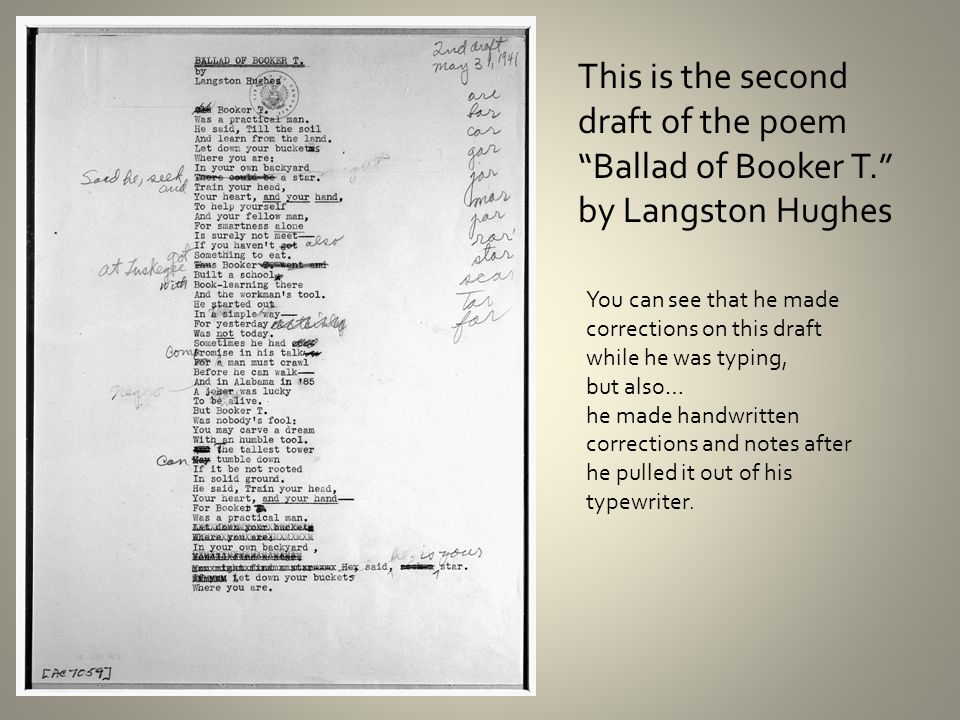 BALLAD OF BOOKER T.
by
Langston Hughes
2nd draft
may 31, 1941
Booker T.
Was a practical man.
He said, Till the soil
And learn from the land.
Let down your buckets
Where you are:
In your own backyard
There could be a star.
Said he, seek
and
might
Train your head,
Your heart, and your hand,
To help yourself
And your fellow man,
For smartness alone
Is surely not meet—
If you haven't got also
Something to eat.
Thus Booker T. went and
got
at Tuskegee
Built a school,
with
Book-learning there
And the workman's tool.
He started out
In a simple way—
For yesterday
Was not today.
Sometimes he had
Promise in his talk
For a man must crawl
Before he can walk—
And in Alabama in '85
A joker was lucky
negro
To be alive.
But Booker T.
Was nobody's fool:
You may carve a dream
With an humble tool.
The tallest tower
Can
May tumble down
If it be not rooted
In solid ground.
He said, Train your head,
Your heart, and your hand—
For Booker T.
Was a practical man.
Let down your bucket
Where you are:
In your own backyard,
he, is yours
He said, star.
Let down your buckets
Where you are.
are
bar
car
gar
jar
mar
par
rar
star
scar
tar
far
[AC 7059]
This is the second
draft of the poem
“Ballad of Booker T.”
by Langston Hughes
You can see that he made
corrections on this draft
while he was typing,
but also…
he made handwritten
corrections and notes after
he pulled it out of his
typewriter.